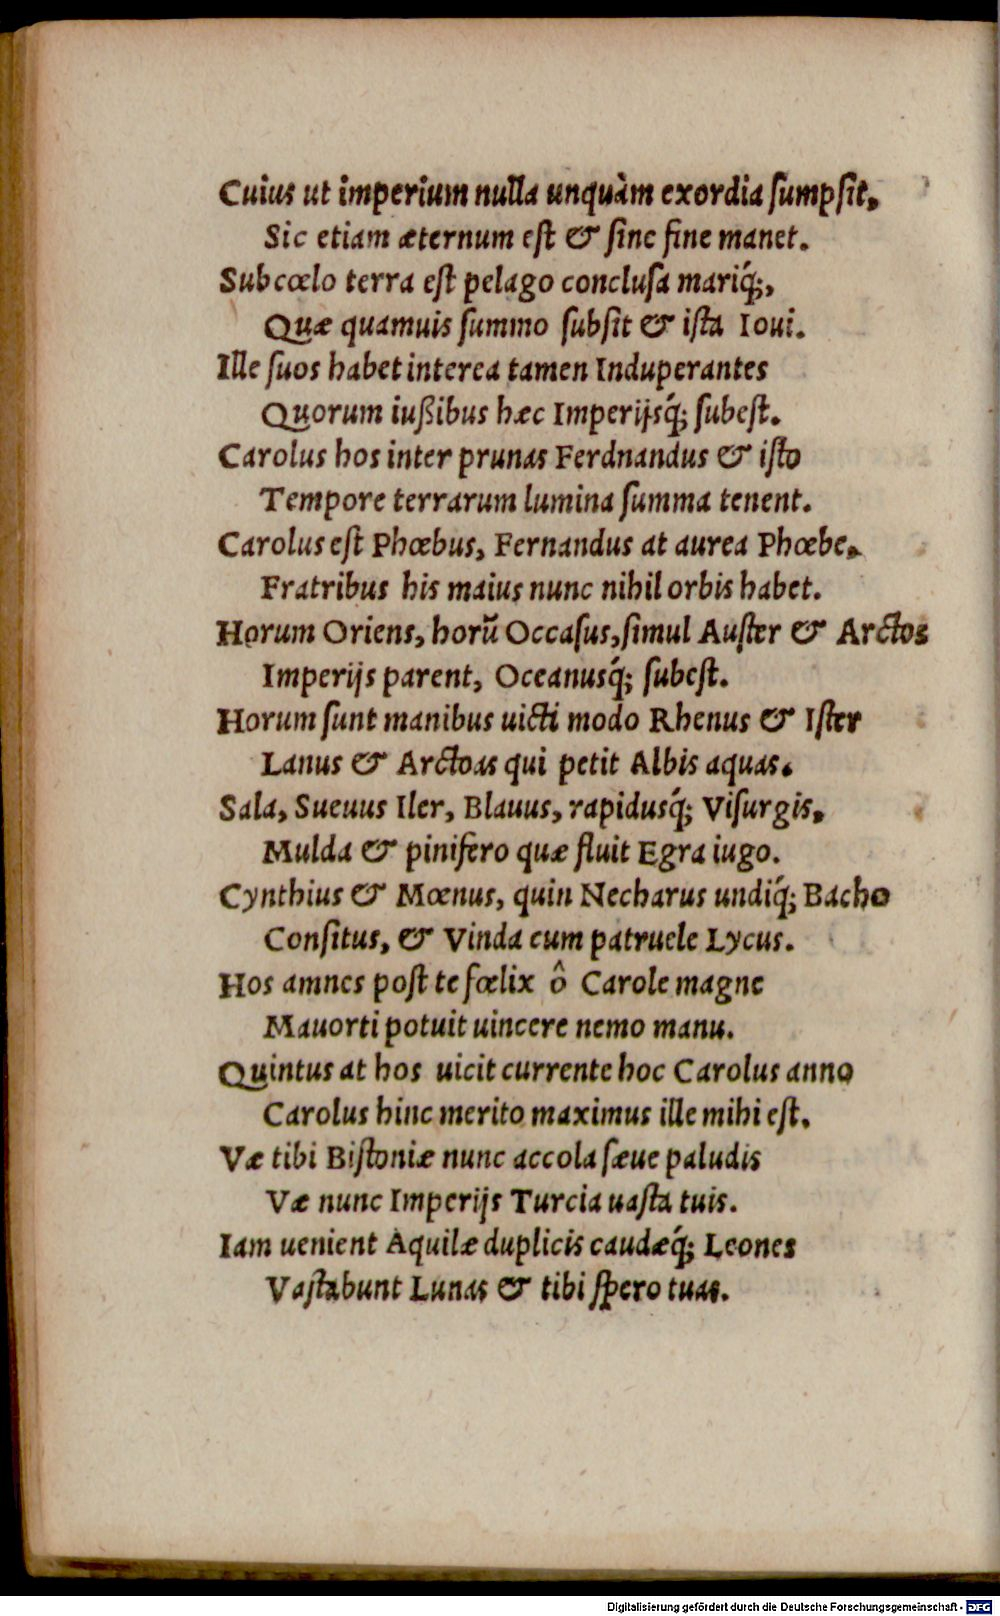 Cuius ut imperium nulla unquàm exordia ſumpſit,
Sic etiam æternum eſt & ſine fine manet.
Sub cœlo terra eſt pelago concluſa mariq́;,
Quæ quamuis ſummo ſubſit & iſta Ioui.
Ille ſuos habet interea tamen Induperantes
Quorum iußibus hæc Imperijsq́; ſubeſt.
Carolus hos inter prunas Ferdnandus & iſto
Tempore terrarum lumina ſumma tenent.
Carolus eſt Phœbus, Fernandus at aurea Phœbe,
Fratribus his maius nunc nihil orbis habet.
Horum Oriens, horū Occaſus, ſimul Auſter & Arctos
Imperijs parent, Oceanusq́; ſubeſt.
Horum ſunt manibus uicti modo Rhenus & Iſter
Lanus & Arctoas qui petit Albis aquas.
Sala, Sueuus Iler, Blauus, rapidusq́; Viſurgis,
Mulda & pinifero quæ fluit Egra iugo.
Cynthius & Mœnus, quin Necharus undiq́; Bacho
Conſitus, & Vinda cum patruele Lycus.
Hos amnes poſt te fœlix ô Carole magne
Mauorti potuit uincere nemo manu.
Quintus at hos uicit currente hoc Carolus anno
Carolus hinc merito maximus ille mihi eſt.
Væ tibi Biſtoniæ nunc accola ſæue paludis
Væ nunc Imperijs Turcia uaſta tuis.
Iam uenient Aquilæ duplicis caudæq́; Leones
Vaſtabunt Lunas & tibi ſpero tuas.
Digitalisierung gefördert durch die Deutsche Forschungsgemeinschaft - DFG